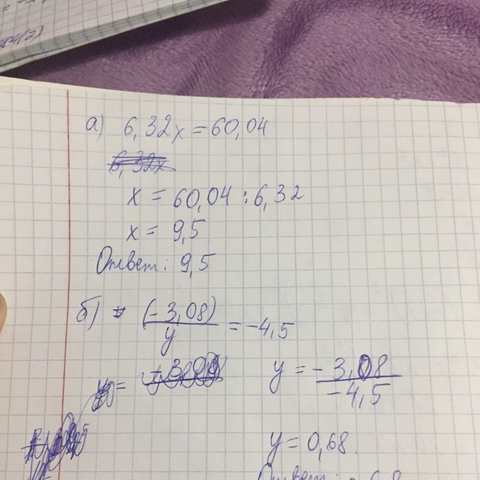 а) 6,32x = 60,04
6,32x
x = 60,04 : 6,32
x = 9,5
Ответ: 9,5
б) (-3,08)/y = -4,5
y = -3,08/-4,5
y = 0,68
Ответ: